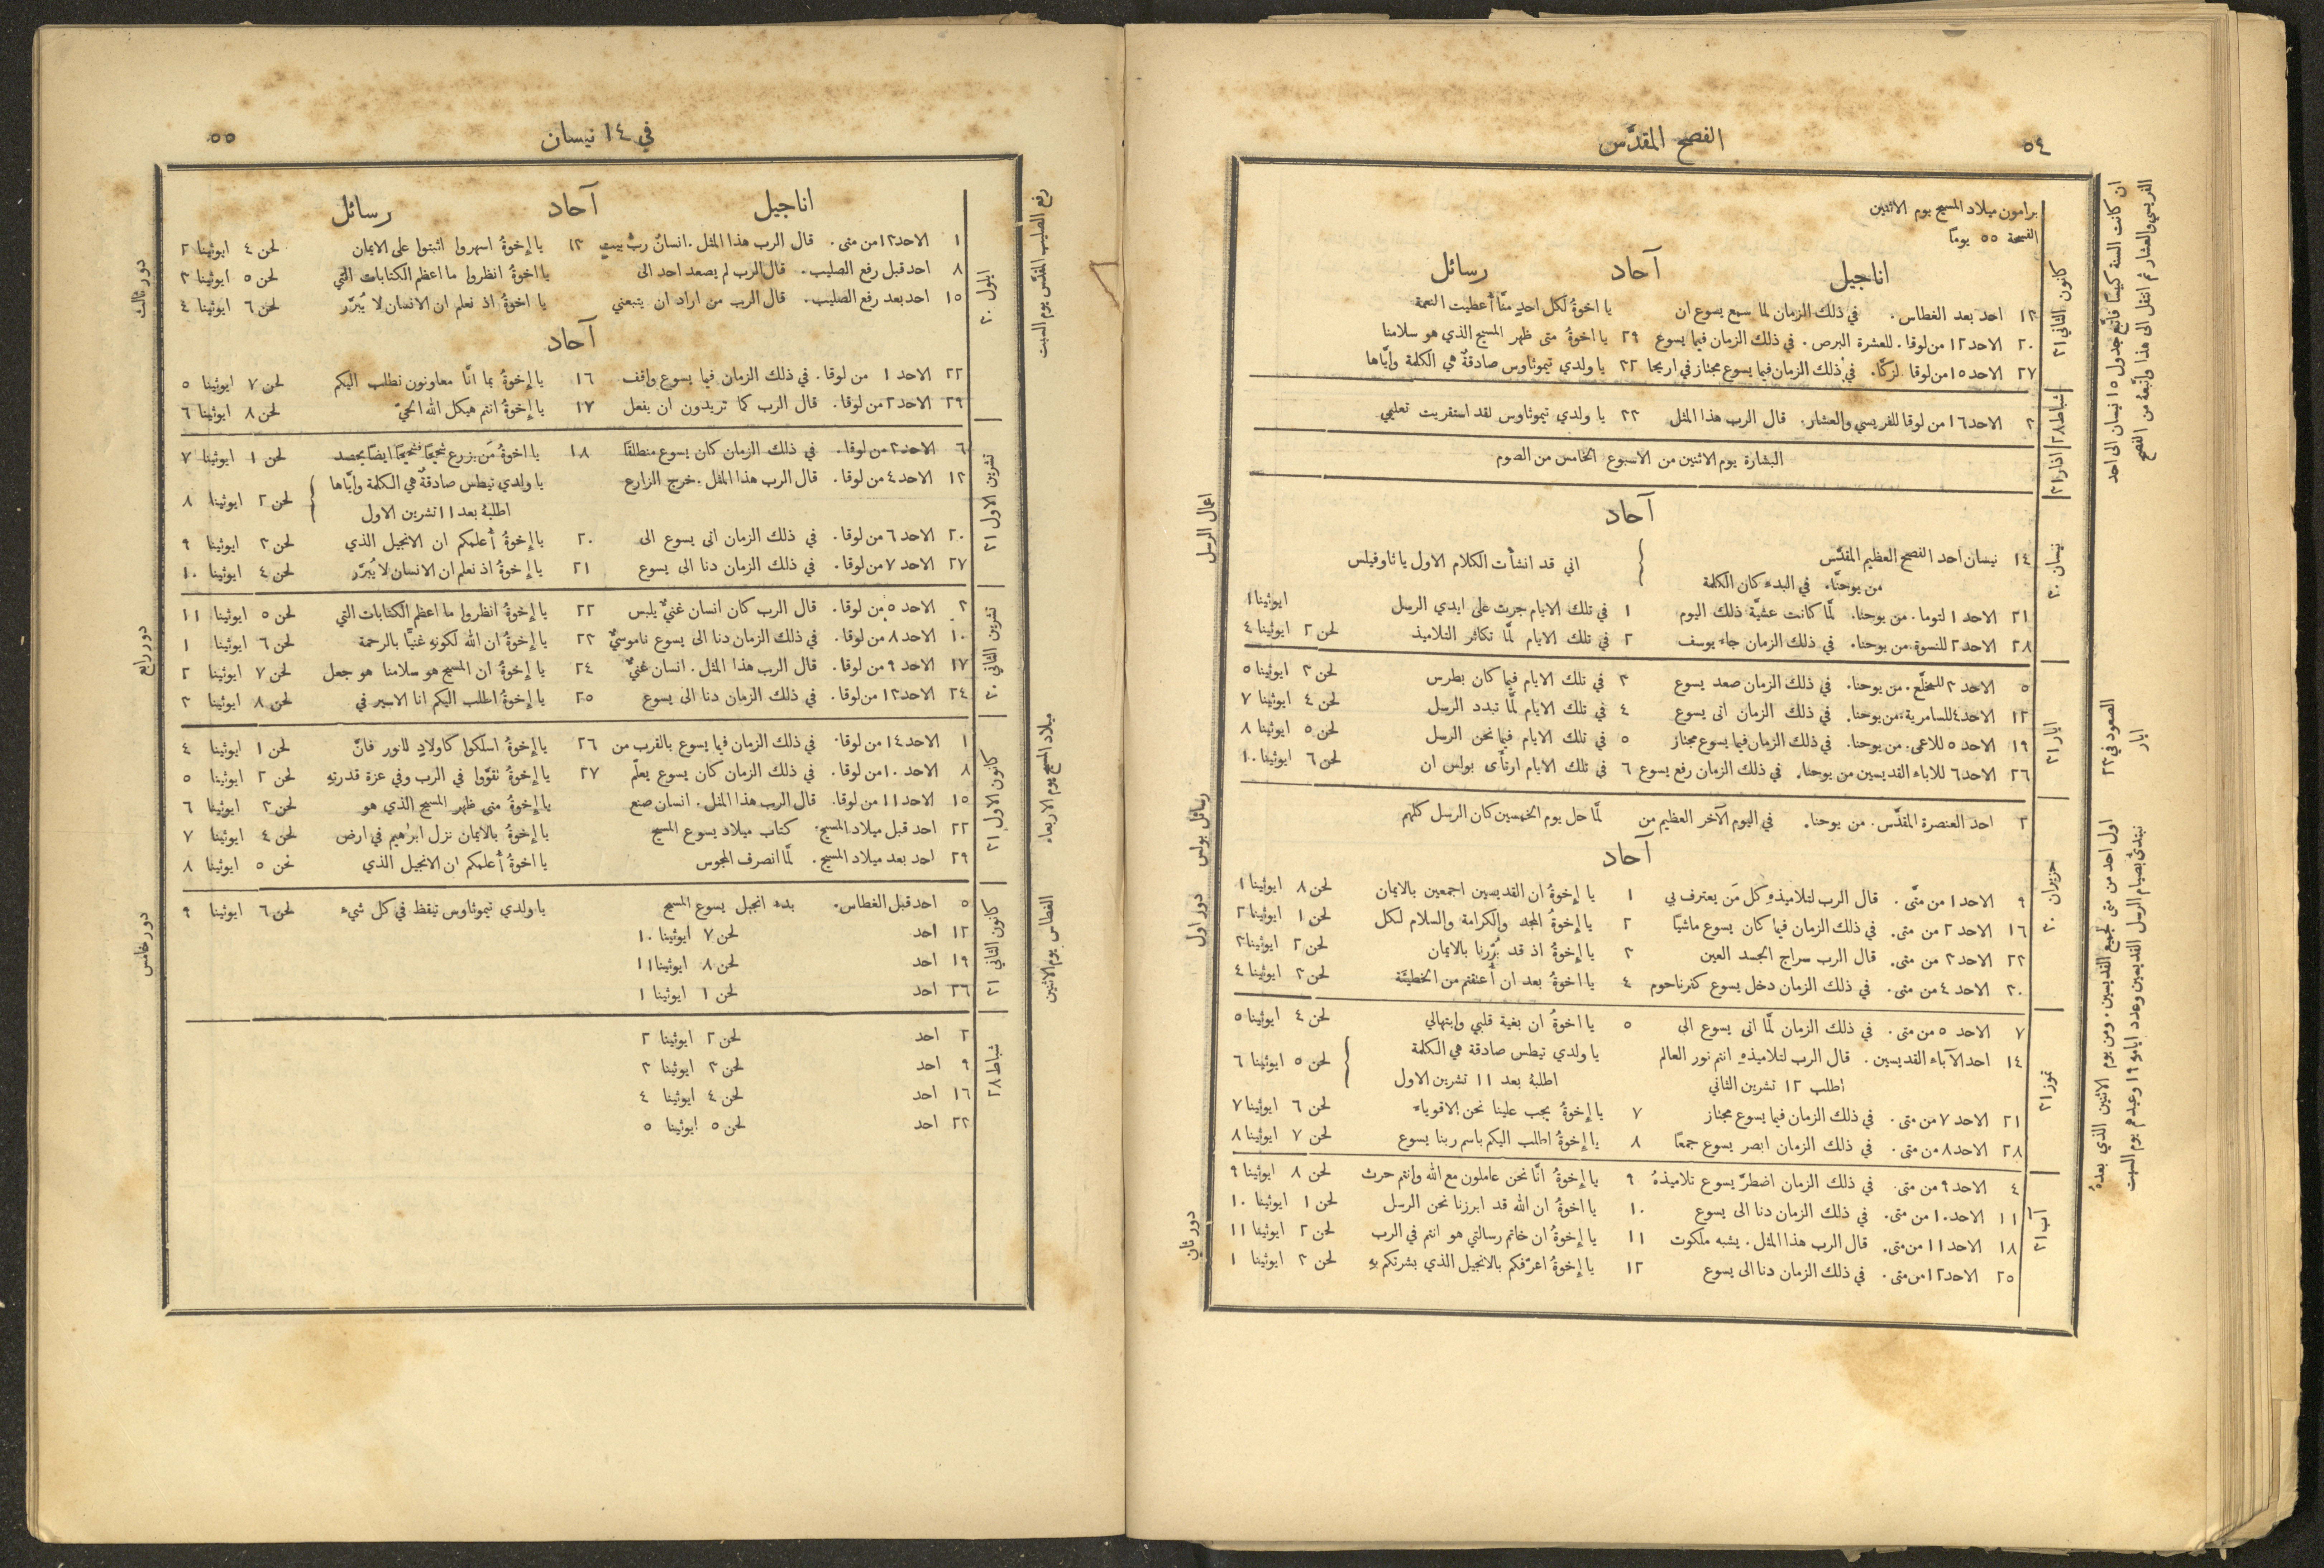 ٥٤
الفصح المقدَّس
برامون ميلاد المسيح يوم الاثنين
الفسحة ٥٥ يومًا
اناجيل آحاد رسائل
كانون الثاني ٣١
١٣ احد بعد الغطاس. في ذلك الزمان لما سمع يسوع ان يا اخوةُ لكل احدٍ منَّا أُعطيت النعمة
٢٠ الاحد ١٢ من لوقا. للعشرة البرص. في ذلك الزمان فيما يسوع ٢٩ يا اخوةُ متى ظهر المسيح الذي هو سلامنا
٢٧ الاحد ١٥ من لوقا لزكَّا. في ذلك الزمان فيما يسوع مجتاز في اريحا ٣٢ يا ولدي تيموثاوس صادقةٌ هي الكلمة وايَّاها
شباط ٢٨
٣ الاحد ١٦ من لوقا للفريسي والعشار. قال الرب هذا المثل ٣٣ يا ولدي تيموثاوس لقد استقريت تعليمي
اذار ٣١
البشارة يوم الاثنين من الاسبوع الخامس من الصوم
آحاد
نيسان ٣٠
١٤ نيسان احد الفصح العظيم المقدَّس
من يوحنَّا. في البدء كان الكلمة
اني قد انشأت الكلام الاول يا ثاوفيلس
٢١ الاحد ١ لتوما. من يوحنا. لمَّا كانت عشيَّة ذلك اليوم ١ في تلك الايام جرت على ايدي الرسل ايوثينا ١
٢٨ الاحد ٢ للنسوة. من يوحنا. في ذلك الزمان جاء يوسف ٢ في تلك الايام لمَّا تكاثر التلاميذ لحن ٢ ايوثينا ٤
ايار ٣١
٥ الاحد ٣ للمخلَّع. من يوحنا. في ذلك الزمان صعد يسوع ٣ في تلك الايام فيما كان بطرس لحن ٣ ايوثينا ٥
١٢ الاحد ٤ للسامرية. من يوحنا. في ذلك الزمان اتى يسوع ٤ في تلك الايام لمَّا تبدد الرسل لحن ٤ ايوثينا ٧
١٩ الاحد ٥ للاعمى. من يوحنا. في ذلك الزمان فيما يسوع مجتاز ٥ في تلك الايام فيما نحن الرسل لحن ٥ ايوثينا ٨
٢٦ الاحد ٦ للآباء القديسين من يوحنا. في ذلك الزمان رفع يسوع ٦ في تلك الايام ارتأى بولس ان لحن ٦ ايوثينا ١٠
حزيران ٣٠
٢ احد العنصرة المقدَّس. من يوحنا. في اليوم الآخر العظيم من لمَّا حل يوم الخمسين كان الرسل كلهم
آحاد
٩ الاحد ١ من متَّى. قال الرب لتلاميذهِ كل مَن يعترف بي ١ يا إخوةُ ان القديسين اجمعين بالايمان لحن ٨ ايوثينا ١
١٦ الاحد ٢ من متى. في ذلك الزمان فيما كان يسوع ماشيًا ٢ يا إخوةُ المجد والكرامة والسلام لكل لحن ١ ايوثينا ٢
٢٣ الاحد ٣ من متى. قال الرب سراج الجسد العين ٣ يا إخوةُ اذ قد بُرِّرنا بالايمان لحن ٢ ايوثينا ٣
٣٠ الاحد ٤ من متى. في ذلك الزمان دخل يسوع كفرناحوم ٤ يا اخوةُ بعد ان أُعتقتم من الخطيئة لحن ٣ ايوثينا ٤
تموز ٣١
٧ الاحد ٥ من متى. في ذلك الزمان لمَّا اتى يسوع الى ٥ يا اخوةُ ان بغية قلبي وابتهالي لحن ٤ ايوثينا ٥
١٤ احد الآباء القديسين. قال الرب لتلاميذهِ انتم نور العالم يا ولدي تيطس صادقة هي الكلمة لحن ٥ ايوثينا ٦
اطلب ١٣ تشرين الثاني اطلبهُ بعد ١١ تشرين الاول
٢١ الاحد ٧ من متى. في ذلك الزمان فيما يسوع مجتاز ٧ يا إخوةُ يجب علينا نحن الاقوياء لحن ٦ ايوثينا ٧
٢٨ الاحد ٨ من متى. في ذلك الزمان ابصر يسوع جمعًا ٨ يا إخوةُ اطلب اليكم باسم ربنا يسوع لحن ٧ ايوثينا ٨
آب ٣١
٤ الاحد ٩ من متى. في ذلك الزمان اضطرَّ يسوع تلاميذهُ ٩ يا إخوةُ انَّا نحن عاملون مع الله وانتم حرث لحن ٨ ايوثينا ٩
١١ الاحد ١٠ من متى. في ذلك الزمان دنا الى يسوع ١٠ يا اخوةُ ان الله قد ابرزنا نحن الرسل لحن ١ ايوثينا ١٠
١٨ الاحد ١١ من متى. قال الرب هذا المثل. يشبه ملكوت ١١ يا إخوةُ ان خاتم رسالتي هو انتم في الرب لحن ٢ ايوثينا ١١
٢٥ الاحد ١٢ من متى. في ذلك الزمان دنا الى يسوع ١٢ يا إخوةُ اعرّفكم بالانجيل الذي بشرتكم بهِ لحن ٣ ايوثينا ١
ان كانت السنة كبيسًا فاتبع جدول ١٥ نيسان الى احد
الفريسي والعشار ثم انتقل الى هذا واتبعهُ من الفصح
الصعود في ٢٣
ايار
اول احد من متى لجميع القديسين. ومن يوم الاثنين الذي بعدهُ
نبتدئُ بصيام الرسل القديسين وعدد ايامهِ ١٩ وعيدهم يوم السبت
اعمال الرسل
رسائل بولس
دور اول
دور ثانٍ
في ١٤ نيسان
٥٥
اناجيل آحاد رسائل
ايلول ٣٠
١ الاحد ١٣ من متى. قال الرب هذا المثل. انسانٌ ربُّ بيتٍ ١٣ يا إخوةُ اسهروا اثبتوا على الايمان لحن ٤ ايوثينا ٢
٨ احد قبل رفع الصليب. قال الرب لم يصعد احد الى يا اخوةُ انظروا ما اعظم الكتابات التي لحن ٥ ايوثينا ٣
١٥ احد بعد رفع الصليب. قال الرب من اراد ان يتبعني يا اخوةُ اذ نعلم ان الانسان لا يُبرَّر لحن ٦ ايوثينا ٤
آحاد
٢٢ الاحد ١ من لوقا. في ذلك الزمان فيما يسوع واقف ١٦ يا إخوةُ بما انَّا معاونون نطلب اليكم لحن ٧ ايوثينا ٥
٢٩ الاحد ٢ من لوقا. قال الرب كما تريدون ان يفعل ١٧ يا إخوةُ انتم هيكل الله الحيّ لحن ٨ ايوثينا ٦
تشرين الاول ٣١
٦ الاحد ٣ من لوقا. في ذلك الزمان كان يسوع منطلقًا ١٨ يا اخوةُ مَن يزرع شحيحًا فشحيحًا ايضًا يحصد لحن ١ ايوثينا ٧
١٣ الاحد ٤ من لوقا. قال الرب هذا المثل. خرج الزارع يا ولدي تيطس صادقةٌ هي الكلمة وايَّاها
اطلبهُ بعد ١١ تشرين الاول لحن ٢ ايوثينا ٨
٢٠ الاحد ٦ من لوقا. في ذلك الزمان اتى يسوع الى ٢٠ يا إخوةُ أُعلمكم ان الانجيل الذي لحن ٣ ايوثينا ٩
٢٧ الاحد ٧ من لوقا. في ذلك الزمان دنا الى يسوع ٢١ يا إخوةُ اذ نعلم ان الانسان لا يُبرَّر لحن ٤ ايوثينا ١٠
تشرين الثاني ٣٠
٣ الاحد ٥ من لوقا. قال الرب كان انسان غنيٌّ يلبس ٢٢ يا إخوةُ انظروا ما اعظم الكتابات التي لحن ٥ ايوثينا ١١
١٠ الاحد ٨ من لوقا. في ذلك الزمان دنا الى يسوع ناموسيٌّ ٢٣ يا إخوةُ ان الله لكونهِ غنيًّا بالرحمة لحن ٦ ايوثينا ١
١٧ الاحد ٩ من لوقا. قال الرب هذا المثل. انسان غنيٌّ ٢٤ يا إخوةُ ان المسيح هو سلامنا هو جعل لحن ٧ ايوثينا ٢
٢٤ الاحد ١٣ من لوقا. في ذلك الزمان دنا الى يسوع ٢٥ يا إخوةُ اطلب اليكم انا الاسير في لحن ٨ ايوثينا ٣
كانون الاول ٣١
١ الاحد ١٤ من لوقا. في ذلك الزمان فيما يسوع بالقرب من ٢٦ يا إخوةُ اسلكوا كاولادٍ للنور فانَّ لحن ١ ايوثينا ٤
٨ الاحد ١٠ من لوقا. في ذلك الزمان كان يسوع يعلّم ٢٧ يا إخوةُ تقوَّوا في الرب وفي عزة قدرتهِ لحن ٢ ايوثينا ٥
١٥ الاحد ١١ من لوقا. قال الرب هذا المثل. انسان صنع يا إخوةُ متى ظهر المسيح الذي هو لحن ٣ ايوثينا ٦
٢٢ احد قبل ميلاد المسيح. كتاب ميلاد يسوع المسيح يا إخوةُ بالايمان نزل ابرٰهيم في ارض لحن ٤ ايوثينا ٧
٢٩ احد بعد ميلاد المسيح. لمَّا انصرف المجوس يا اخوةُ أُعلمكم ان الانجيل الذي لحن ٥ ايوثينا ٨
كانون الثاني ٣١
٥ احد قبل الغطاس. بدء انجيل يسوع المسيح يا ولدي تيموثاوس تيقظ في كل شيء لحن ٦ ايوثينا ٩
١٢ احد لحن ٧ ايوثينا ١٠
١٩ احد لحن ٨ ايوثينا ١١
٢٦ احد لحن ١ ايوثينا ١
شباط ٢٨
٢ احد لحن ٢ ايوثينا ٢
٩ احد لحن ٣ ايوثينا ٣
١٦ احد لحن ٤ ايوثينا ٤
٢٣ احد لحن ٥ ايوثينا ٥
رفع الصليب المقدَّس يوم السبت
ميلاد المسيح يوم الاربعاء
الغطاس يوم الاثنين
دور ثالث
دور رابع
دور خامس